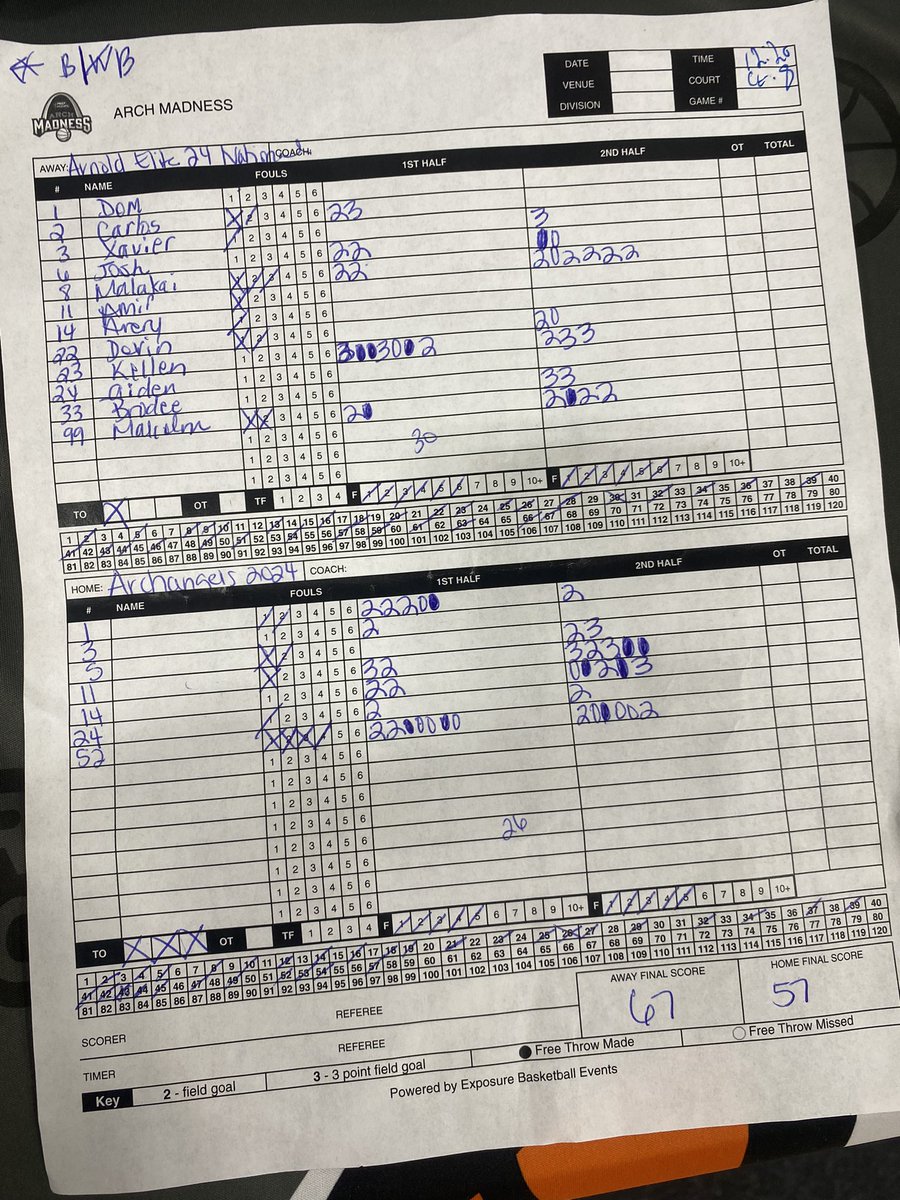 B/W/B
ARCH MADNESS
ARCH MADNESS
DATE TIME 12:20
VENUE COURT
DIVISION GAME #
AWAY: Arnold Elite 24 National COACH:
# NAME FOULS 1ST HALF 2ND HALF OT TOTAL
1 Dom 1 2 3 4 5 6
2 Carlos 1 2 3 4 5 6 23 3
3 Xavier 1 2 3 4 5 6 ●0
6 Josh 1 2 3 4 5 6 22 202222
8 Malakai 1 2 3 4 5 6 22
11 Amir 1 2 3 4 5 6
14 Avery 1 2 3 4 5 6 20
22 Dorin 1 2 3 4 5 6 3●●30●2 233
23 Kellen 1 2 3 4 5 6
24 Aiden 1 2 3 4 5 6 33
33 Bridee 1 2 3 4 5 6 2●22
99 Malcolm 1 2 3 4 5 6 2●
1 2 3 4 5 6 30
1 2 3 4 5 6
1 2 3 4 5 6
TO X OT TF 1 2 3 4 F 1 2 3 4 5 6 7 8 9 10+ F 1 2 3 4 5 6 7 8 9 10+
1 2 3 4 5 6 7 8 9 10 11 12 13 14 15 16 17 18 19 20 21 22 23 24 25 26 27 28 29 30 31 32 33 34 35 36 37 38 39 40
41 42 43 44 45 46 47 48 49 50 51 52 53 54 55 56 57 58 59 60 61 62 63 64 65 66 67 68 69 70 71 72 73 74 75 76 77 78 79 80
81 82 83 84 85 86 87 88 89 90 91 92 93 94 95 96 97 98 99 100 101 102 103 104 105 106 107 108 109 110 111 112 113 114 115 116 117 118 119 120
HOME: Archangels 2024 COACH:
# NAME FOULS 1ST HALF 2ND HALF OT TOTAL
1 1 2 3 4 5 6 2220● 2
3 1 2 3 4 5 6 2
5 1 2 3 4 5 6 23
11 1 2 3 4 5 6 32 323●●
14 1 2 3 4 5 6 22 0●2●3
24 1 2 3 4 5 6 2 2
52 1 2 3 4 5 6 22●00●0 20●002
1 2 3 4 5 6
1 2 3 4 5 6
1 2 3 4 5 6
1 2 3 4 5 6 26
1 2 3 4 5 6
1 2 3 4 5 6
1 2 3 4 5 6
1 2 3 4 5 6
TO X X X OT TF 1 2 3 4 F 1 2 3 4 5 6 7 8 9 10+ F 1 2 3 4 5 6 7 8 9 10+
1 2 3 4 5 6 7 8 9 10 11 12 13 14 15 16 17 18 19 20 21 22 23 24 25 26 27 28 29 30 31 32 33 34 35 36 37 38 39 40
41 42 43 44 45 46 47 48 49 50 51 52 53 54 55 56 57 58 59 60 61 62 63 64 65 66 67 68 69 70 71 72 73 74 75 76 77 78 79 80
81 82 83 84 85 86 87 88 89 90 91 92 93 94 95 96 97 98 99 100 101 102 103 104 105 106 107 108 109 110 111 112 113 114 115 116 117 118 119 120
SCORER REFEREE AWAY FINAL SCORE 67 HOME FINAL SCORE 57
TIMER REFEREE ● Free Throw Made ○ Free Throw Missed
Key 2 - field goal 3 - 3 point field goal
Powered by Exposure Basketball Events